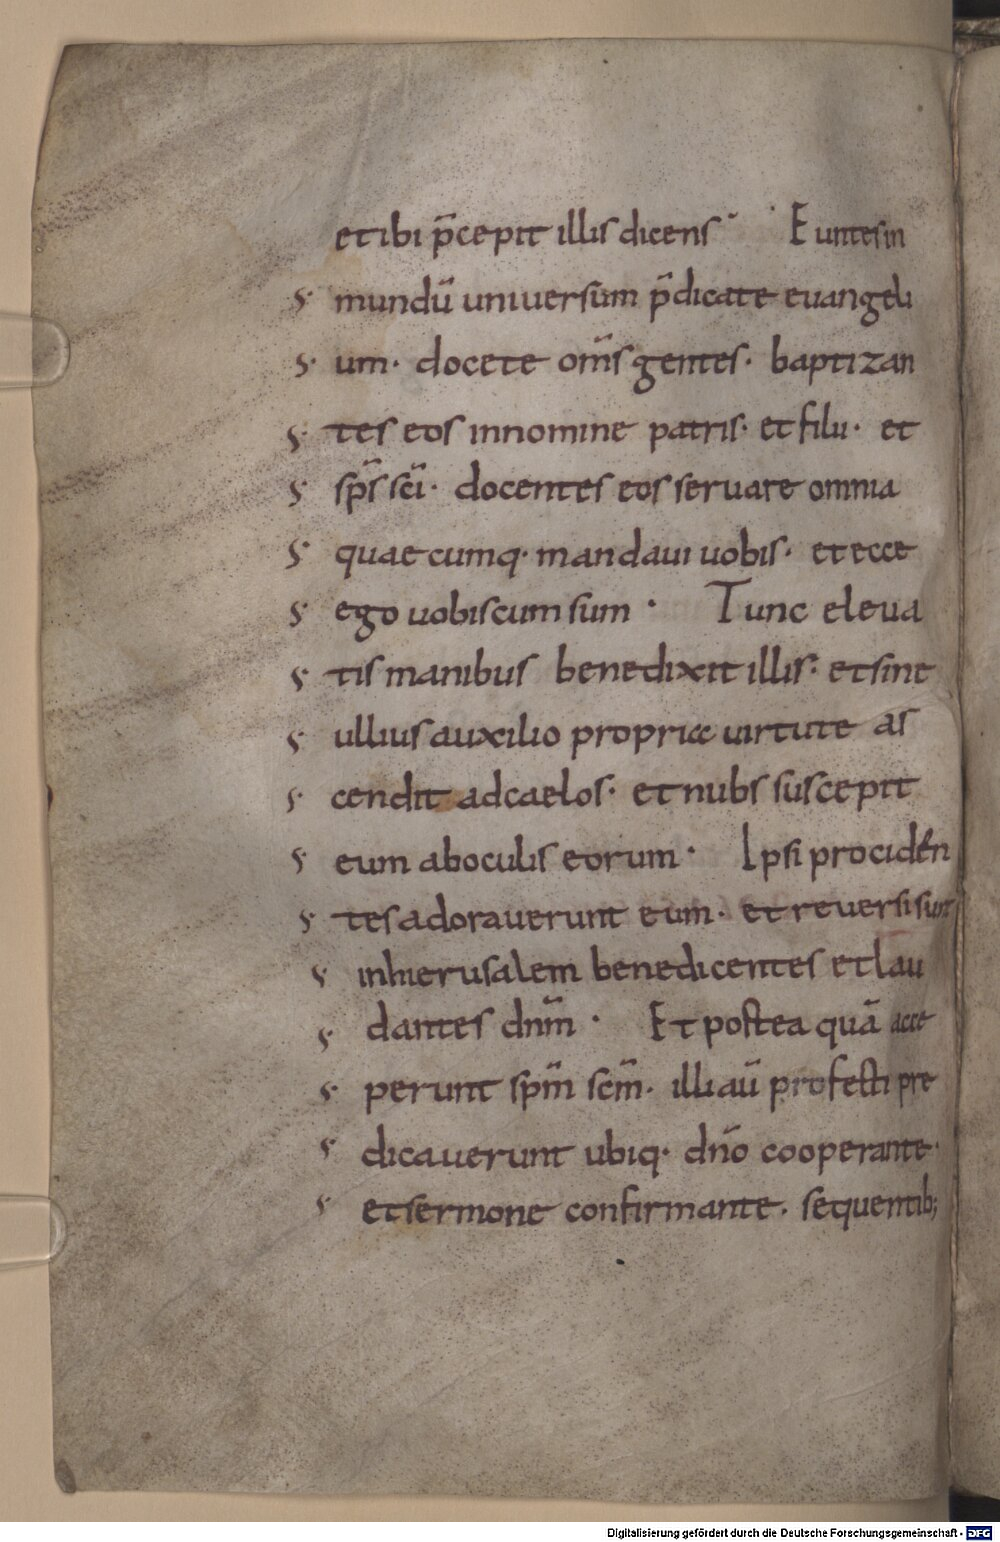 et ibi p̄cepit illis dicens · Euntes in
mundū uniuersum p̄dicate euangeli
um · docete om̄s gentes · baptizan
tes eos in nomine patris · et filii · et
sp̄s sc̄i · docentes eos seruare omnia
quaecumq· mandaui uobis · et ecce
ego uobiscum sum · Tunc eleua
tis manibus benedixit illis · et sine
ullius auxilio propria uirtute as
cendit ad caelos · et nubs suscepit
eum ab oculis eorum · Ipsi prociden
tes adorauerunt eum · et reuersi sunt
in hierusalem benedicentes et lau
dantes dn̄m · Et postea quā acce
perunt sp̄m sc̄m · illi aū profecti pre
dicauerunt ubiq· dn̄o cooperante ·
et sermone confirmante · sequentib;
Digitalisierung gefördert durch die Deutsche Forschungsgemeinschaft - DFG